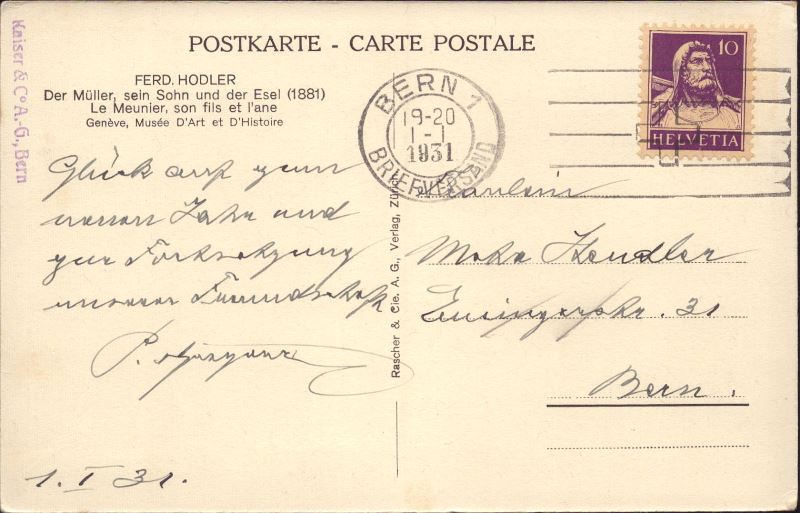 POSTKARTE - CARTE POSTALE
Kaiser & Co A.-G., Bern
FERD. HODLER
Der Müller, sein Sohn und der Esel (1881)
Le Meunier, son fils et l'ane
Genève, Musée D'Art et D'Histoire
BERN 1
19-20
1-I
1931
BRIEFVERSAND
10
HELVETIA
Glück auf zum
neuen Jahr und
zur Fortsetzung
unserer Freundschaft
P.
1. I 31.
Rascher & Cie. A. G., Verlag, Zürich
Fräulein
Bern.
31